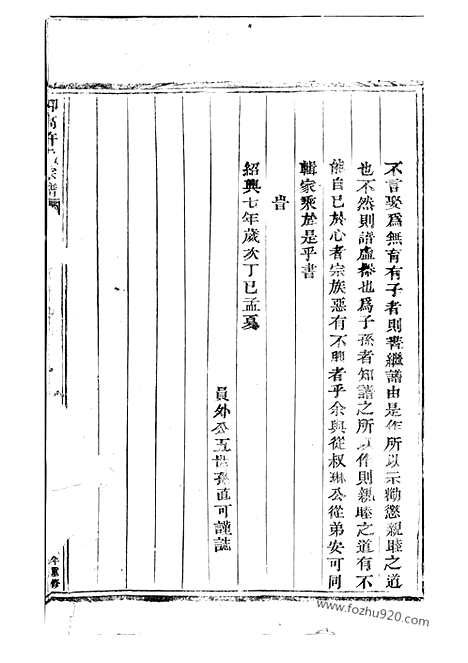 不言娶爲無育有子者則書繼譜由是作所以示勸懲親睦之道
也不然則譜虛操也爲子孫者知譜之所以作則親睦之道有不
能自已於心者宗族惡有不興者乎余與從叔琳公從弟安可同
輯家乘於是乎書
旹
紹興七年歲次丁巳孟夏
員外公五世孫直可謹誌
宗譜
重修
www.fozhu920.com